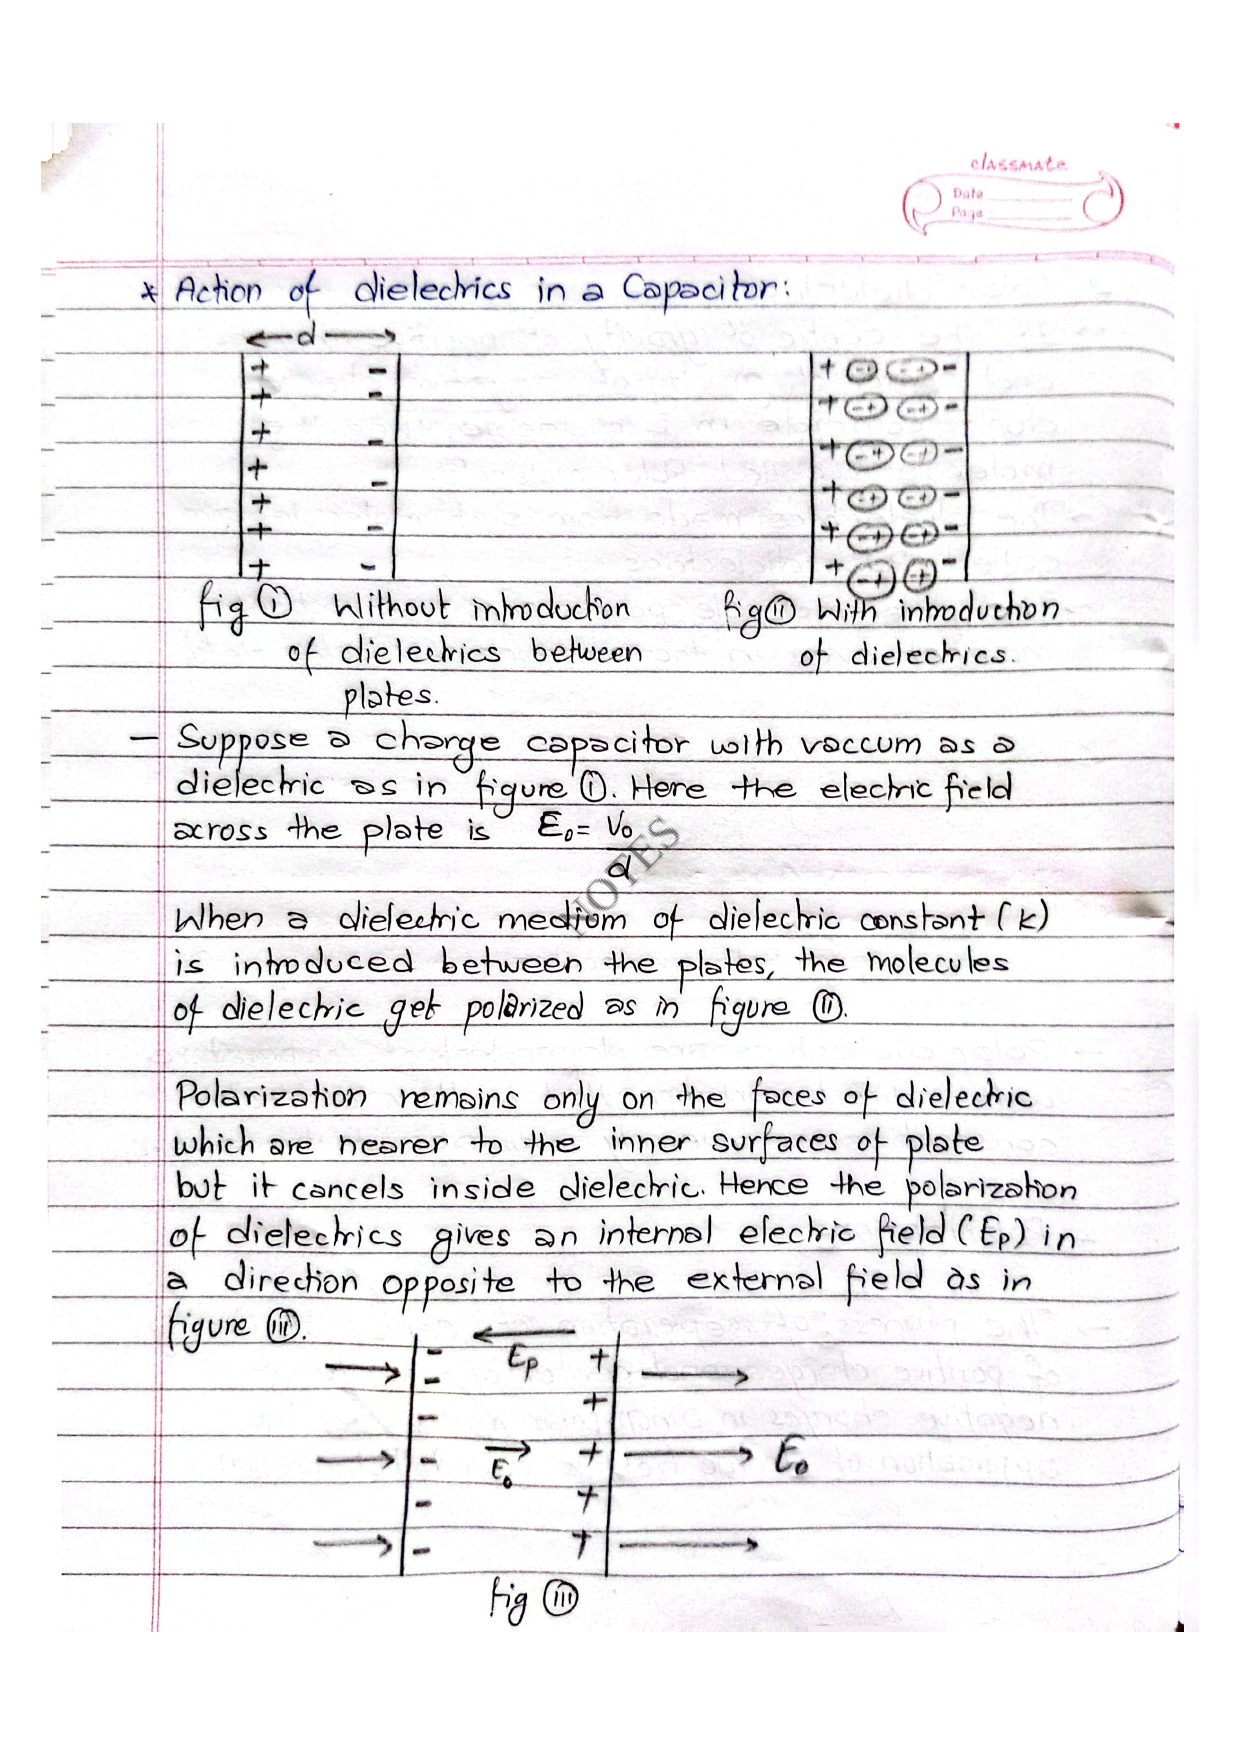 classmate
Date
Page
* Action of dielectrics in a Capacitor:
d
+ -
+ -
+ -
+ -
+ -
+ -
+
+ -+ -+ -
+ -+ -+ -
+ -+ -+ -
+ -+ -+ -
+ -+ -+ -
+ -+ + -
fig (i) Without introduction
of dielectrics between
plates.
fig (ii) With introduction
of dielectrics.
- Suppose a charge capacitor with vaccum as a
dielectric as in figure (i). Here the electric field
across the plate is E₀ = V₀
d
NOTES
When a dielectric medium of dielectric constant (k)
is introduced between the plates, the molecules
of dielectric get polarized as in figure (ii).
Polarization remains only on the faces of dielectric
which are nearer to the inner surfaces of plate
but it cancels inside dielectric. Hence the polarization
of dielectrics gives an internal electric field (Ep) in
a direction opposite to the external field as in
figure (iii).
- Ep +
- +
- E₀ + E₀
- +
- +
-
fig (iii)